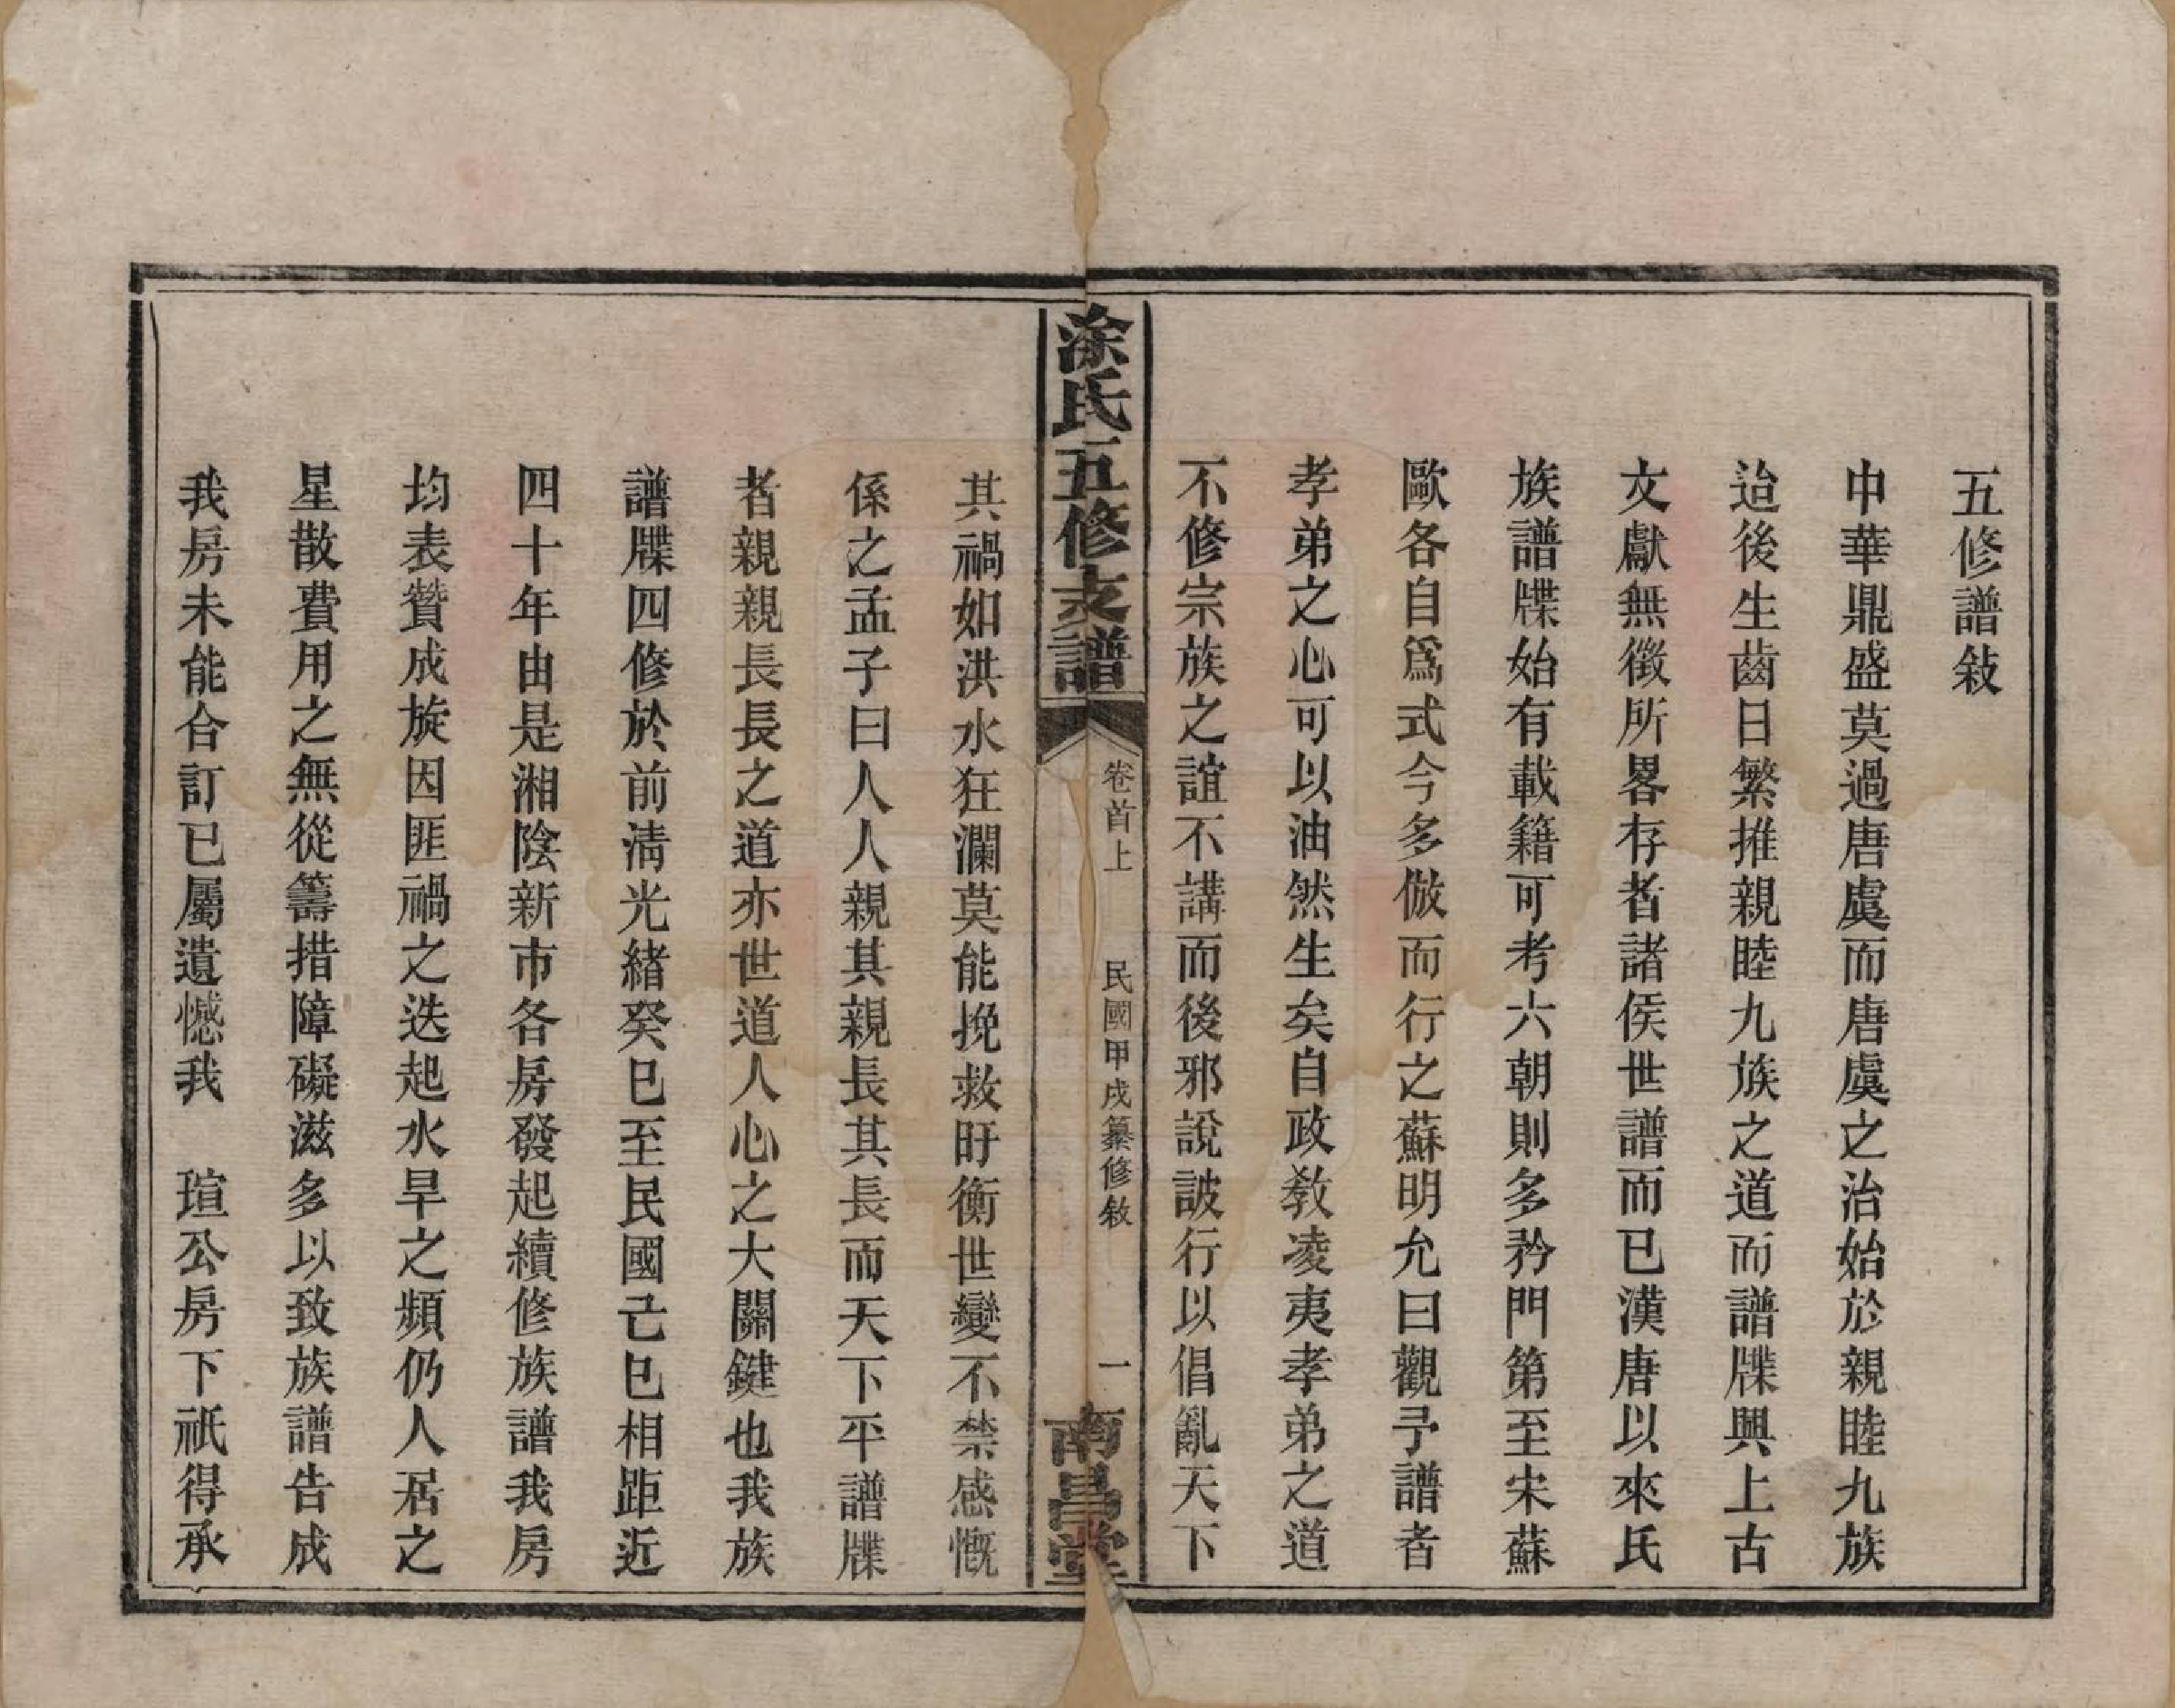 五修譜敍
中華鼎盛莫過唐虞而唐虞之治始於親睦九族
迨後生齒日繁推親睦九族之道而譜牒興上古
文獻無徵所畧存者諸侯世譜而已漢唐以來氏
族譜牒始有載籍可考六朝則多矜門第至宋蘇
歐各自爲式今多倣而行之蘇明允曰觀予譜者
孝弟之心可以油然生矣自政敎凌夷孝弟之道
不修宗族之誼不講而後邪說詖行以倡亂天下
涂氏五修支譜
卷首上
民國甲戌纂修敘
一
南昌堂
其禍如洪水狂瀾莫能挽救旴衡世變不禁感慨
係之孟子曰人人親其親長其長而天下平譜牒
者親親長長之道亦世道人心之大關鍵也我族
譜牒四修於前清光緒癸巳至民國己巳相距近
四十年由是湘陰新市各房發起續修族譜我房
均表贊成旋因匪禍之迭起水旱之頻仍人居之
星散費用之無從籌措障礙滋多以致族譜告成
我房未能合訂已屬遺憾我　瑄公房下祇得承